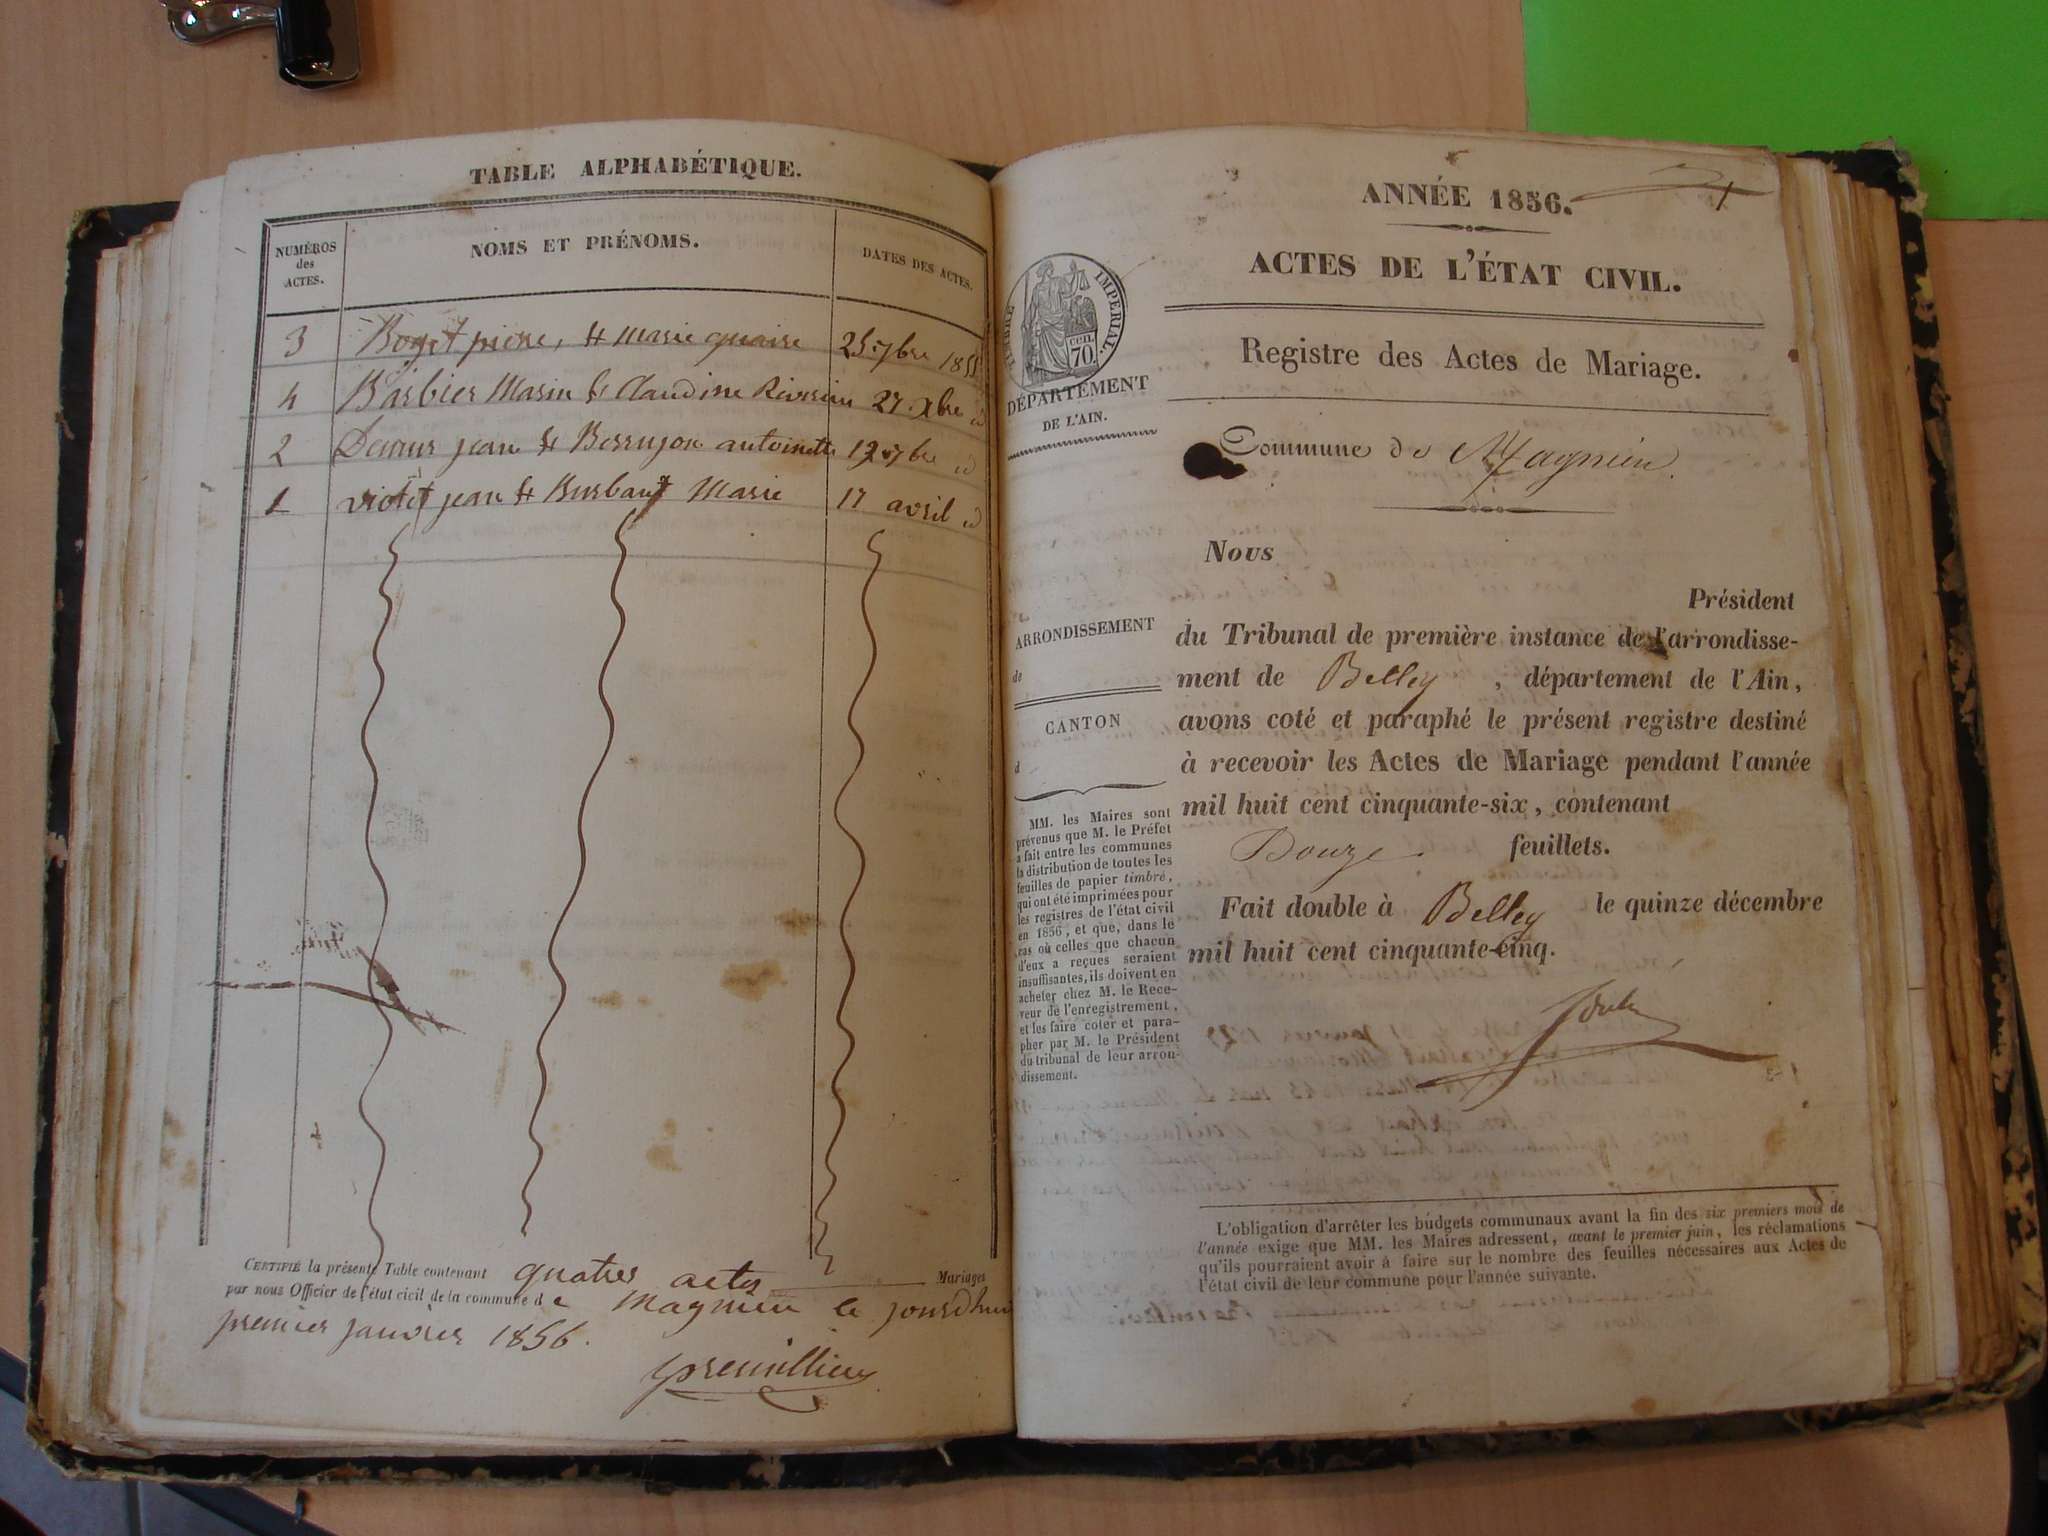 TABLE ALPHABÉTIQUE.
NUMÉROS
des
ACTES.
NOMS ET PRÉNOMS.
DATES DES ACTES.
3 Boget pierre, et Marie 25 7bre 1855
4 Barbier Marin et Claudine 27 Xbre id
2 jean et Berrujon antoinette 7bre id
1 violet jean et Burbant Marie 17 avril id
CERTIFIÉ la présente Table contenant quatres actes Mariages
par nous Officier de l'état civil de la commune de Magnieu le jourdhui
premier janvier 1856.
premillieu
ANNÉE 1856.
1
ACTES DE L'ÉTAT CIVIL.
TIMBRE IMPÉRIAL.
70 cen.
DÉPARTEMENT
DE L'AIN.
Registre des Actes de Mariage.
Commune de Magnieu
Nous
Président
du Tribunal de première instance de l'arrondisse-
ment de Belley, département de l'Ain,
avons coté et paraphé le présent registre destiné
à recevoir les Actes de Mariage pendant l'année
mil huit cent cinquante-six, contenant
Douze feuillets.
Fait double à Belley le quinze décembre
mil huit cent cinquante-cinq.
ARRONDISSEMENT
de
CANTON
d
MM. les Maires sont
prévenus que M. le Préfet
a fait entre les communes
la distribution de toutes les
feuilles de papier timbré,
qui ont été imprimées pour
les registres de l'état civil
en 1856, et que, dans le
cas où celles que chacun
d'eux a reçues seraient
insuffisantes, ils doivent en
acheter chez M. le Rece-
veur de l'enregistrement,
et les faire coter et para-
pher par M. le Président
du tribunal de leur arron-
dissement.
L'obligation d'arrêter les budgets communaux avant la fin des six premiers mois de
l'année exige que MM. les Maires adressent, avant le premier juin, les réclamations
qu'ils pourraient avoir à faire sur le nombre des feuilles nécessaires aux Actes de
l'état civil de leur commune pour l'année suivante.